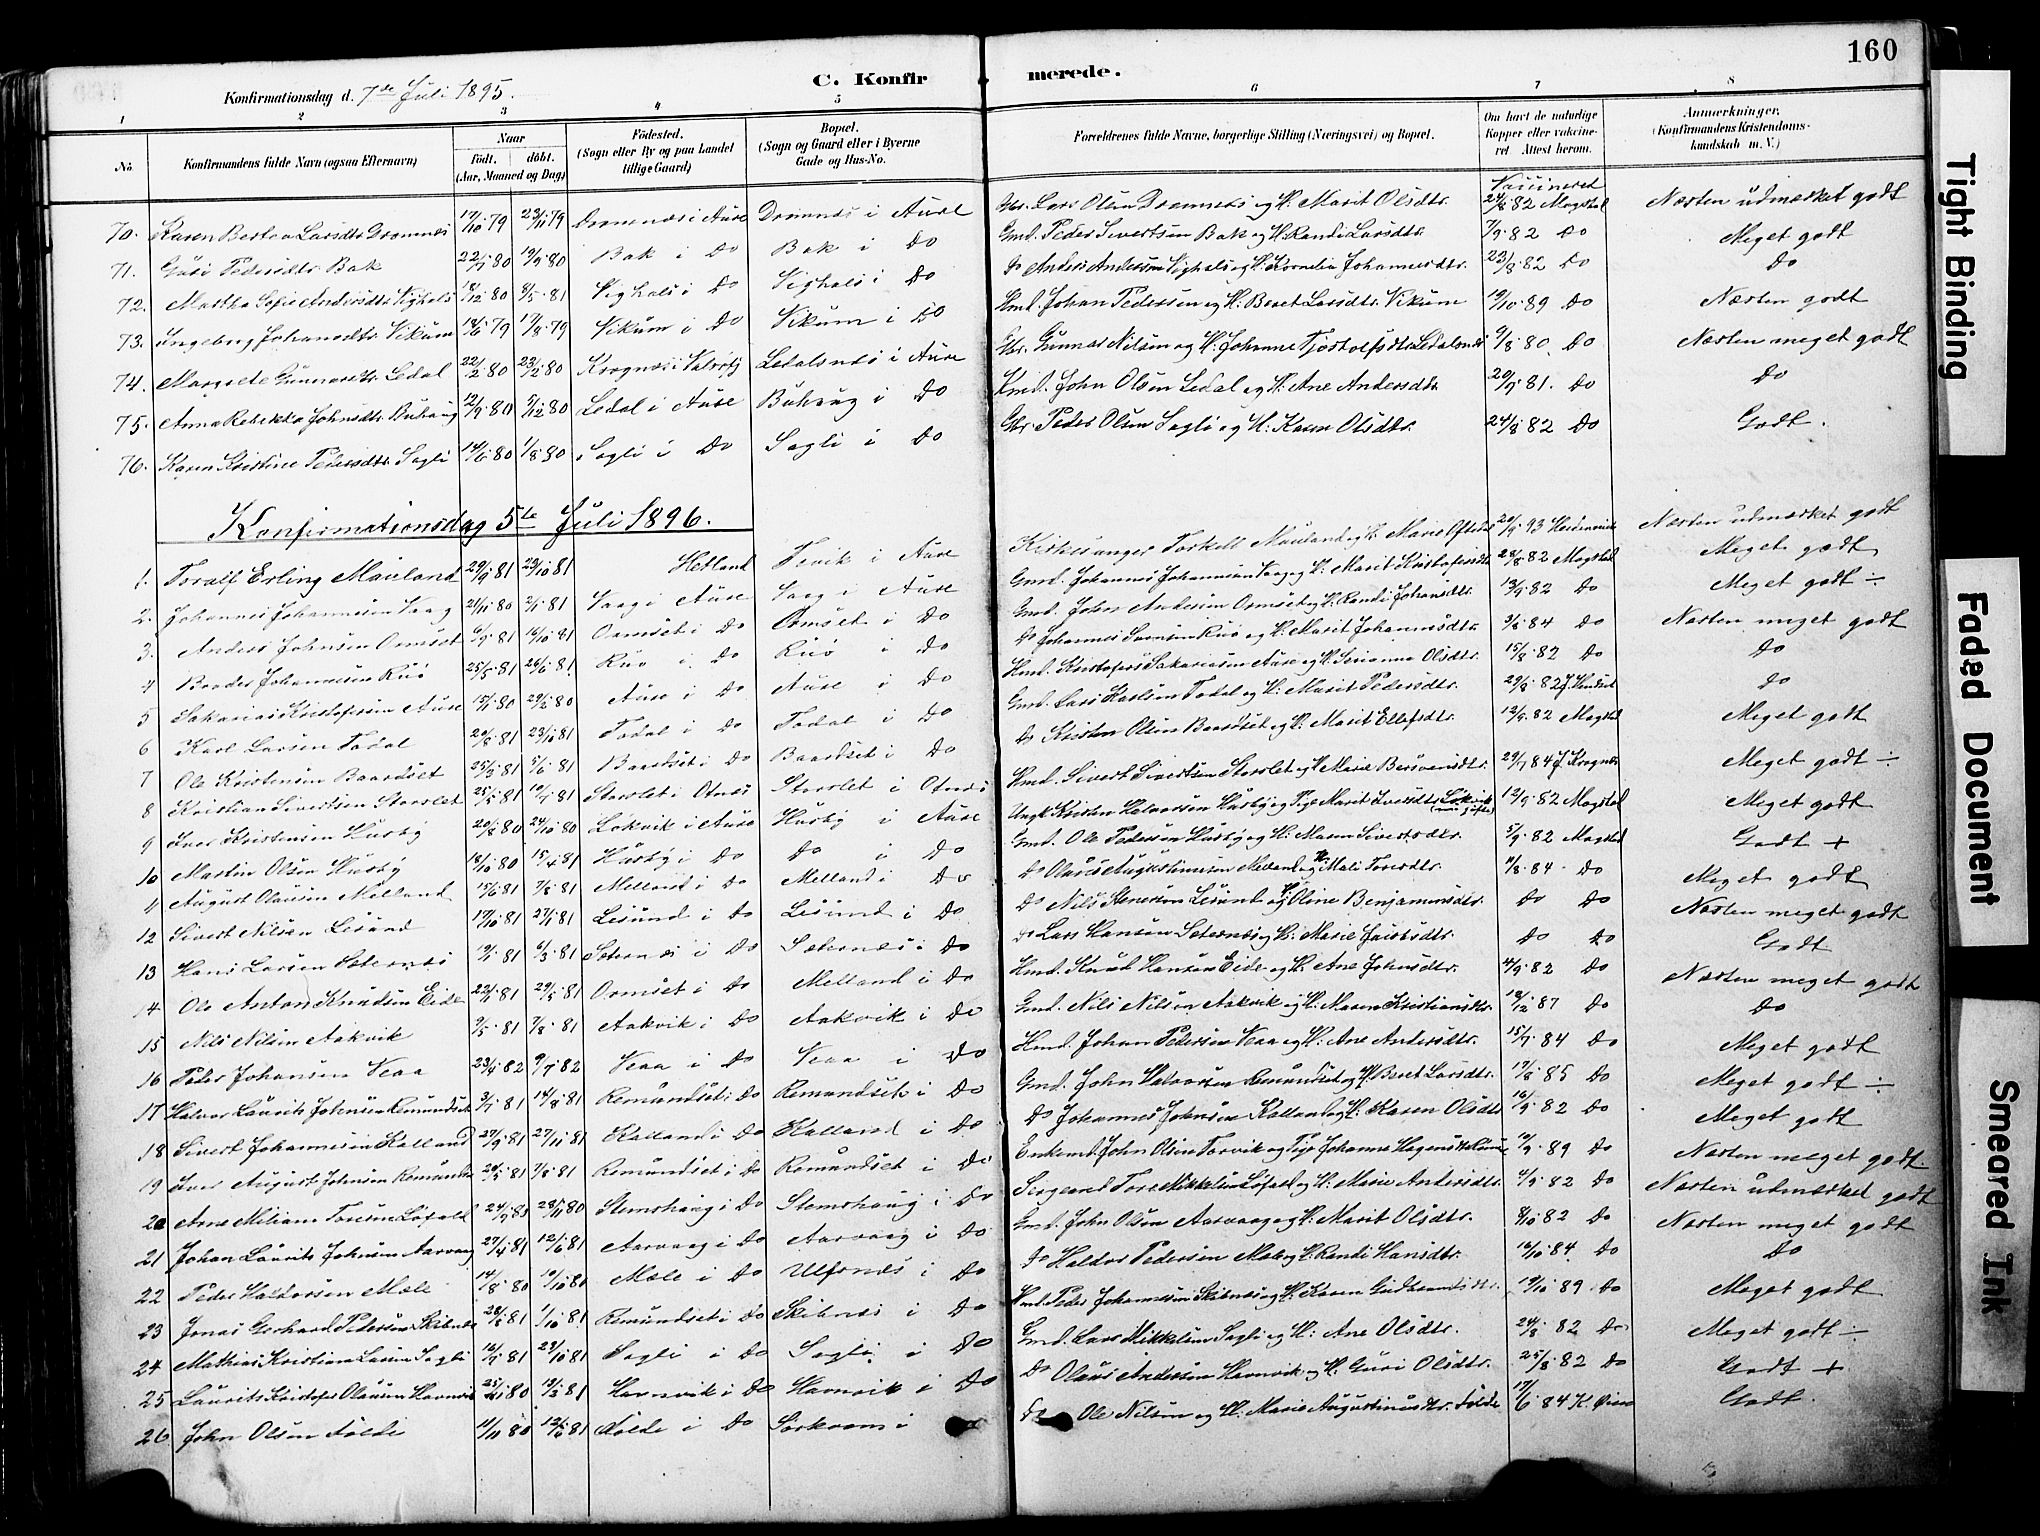 160
C. Konfirmerede.
Konfirmationsdag d. 7de Juli 1895.
1 2 3 4 5 6 7 8
No. Konfirmandens fulde Navn (ogsaa Efternavn) Naar født. døbt. (Aar, Maaned og Dag) Fødested. (Sogn eller By og paa Landet tillige Gaard) Bopæl. (Sogn og Gaard eller i Byerne Gade og Hus-No. Forældrenes fulde Navne, borgerlige Stilling (Næringsvei) og Bopæl. Om havt de naturlige Kopper eller vakcineret Attest herom. Anmærkninger. (Konfirmandens Kristendomskundskab m. V.)
70. Karen Larsdtr. Dromnes 17/10 79 23/11 79 Dromnes i Aure Dromnes i Aure Lars Olsen Dromnes og H. Marit Olsdtr. Vaccineret 24/8 82 Magstad Næsten udmærket godt
71. Guri Pedersdtr. Bak 80 80 Bak i Do Bak i Do Gmd. Peder Sivertsen Bak og H. Randi Larsdtr. 7/9 82 Do Meget godt
72. Martha Sofie Andersdtr. Vighals 80 8/5 81 Vighals i Do Vighals i Do Do Anders Andersen Vighals og H. Kornelia Johannesdtr. 23/8 82 Do Do
73. Ingeborg Johansdtr. Vikum 79 79 Vikum i Do Vikum i Do Hmd. Johan Pedersen og H. Beret Larsdtr. Vikum 19/10 89 Do Næsten godt
74. Margrete Gunnarsdtr. Ledal 22/2 80 80 Krognes i Valsøfj Ledalsnes i Aure Gunnar Nilsen og H. Johanne Ledalsnes 80 Do Næsten meget godt
75. Anna Rebekka Johnsdtr. Buhaug 12/9 80 5/12 80 Ledal i Aure Buhaug i Do Hmd. John Olsen Ledal og H. Ane Andersdtr. 20/9 81 Do Do
76. Karen Kristine Pedersdtr. Sagli 80 1/8 80 Sagli i Do Sagli i Do Peder Olsen Sagli og H. Karen Olsdtr. 24/8 82 Do Godt.
Konfirmationsdag 5te Juli 1896.
1. Toralf Erling Mauland 29/9 81 23/10 81 Hetland i Aure Kirkesanger Torkell Mauland og H. Marie 20/9 93 Næsten udmærket godt
2. Johannes Johannesen Vaag 21/11 80 2/1 81 Vaag i Aure Vaag i Aure Gmd. Johannes Johannesen Vaag og H. Marit Kristofersdtr. 28/8 82 Magstad Meget godt
3. Anders Johnsen Ormset 6/9 81 16/10 81 Ormset i Do Ormset i Do Gmd. John Andersen Ormset og H. Randi Johansdtr. 13/9 82 Do Meget godt ÷
4 Johannesen Ruø 25/5 81 26/6 81 Ruø i Do Ruø i Do Do Johannes Ruø og H. Marit Johannesdtr. 84 Do Næsten meget godt
5 Sakarias Kristofersen Aure 80 80 Aure i Do Aure i Do Hmd. Kristofer Sakariasen Aure og H. Serianna Olsdtr. 15/8 82 Do Do
6 Karl Larsen Todal 20/8 81 23/10 81 Todal i Do Todal i Do Gmd. Lars Karlsen Todal og H. Marit Pedersdtr. 29/8 82 Do
7 Ole Kristensen Baardset 25/3 81 5/6 81 Baardset i Do Baardset i Do Do Kristen Olsen Baardset og H. Marit Ellefsdtr. 12/9 82 Magstad Meget godt
8 Kristian Sivertsen Storslet 25/5 81 81 Storslet i Otnes Storslet i Otnes Hmd. Sivert Sivertsen Storslet og H. Marie 84 J. Krognes Meget godt ÷
9 Iver Kristensen Husby 20/8 80 24/10 80 Lokvik i Aure Husby i Aure Ungk. Kristen Halvorsen Husby og Pige Marit Iversdtr. Lokvik 12/9 82 Magstad Meget godt
10 Martin Olsen Husby 18/10 80 15/4 81 Husby i Do Do i Do Gmd. Ole Pedersen Husby og H. Maren Sivertsdtr. 5/9 82 Magstad Godt +
11 August Olausen Melland 15/6 81 81 Melland i Do Melland i Do Do Olaus Augustinusen Melland og H. Mali Toresdtr. 84 Do Meget godt
12 Sivert Nilsen Lesund 17/10 81 81 Lesund i Do Lesund i Do Do Nils Stenersen Lesund og H. Oline Benjaminsdtr. Do Do Næsten meget godt
13 Hans Larsen Seternes 81 6/3 81 Seternes i Do Seternes i Do Do Lars Hansen Seternes og H. Marie Do Do Godt
14 Ole Anton Knudsen Eide 81 29/5 81 Ormset i Do Melland i Do Hmd. Knud Hansen Eide og H. Ane Johnsdtr. 4/9 82 Do Næsten meget godt
15 Nils Nilsen Aakvik 9/5 81 7/8 81 Aakvik i Do Aakvik i Do Gmd. Nils Nilsen Aakvik og H. Maren Kristiansdtr. 87 Do Do
16 Peder Johansen Veaa 23/4 82 9/7 82 Veaa i Do Veaa i Do Hmd. Johan Petersen Veaa og H. Ane Andersdtr. 84 Do Meget godt
17 Halvor Laurits Johnsen Remundset 81 14/8 81 Remundset i Do Remundset i Do Gmd. John Halvorsen Remundset og H. Beret Larsdtr. 17/8 85 Do Meget godt ÷
18 Sivert Johannesen Kalland 27/9 81 27/11 81 Kalland i Do Kalland i Do Do Johannes Johnsen Kalland og H. Karen Olsdtr. 16/9 82 Do Meget godt
19 Iver August Johnsen Remundset 20/5 81 7/8 81 Remundset i Do Remundset i Do Enkemd. John Olsen Torvik og Pige Johanna 89 Do Næsten meget godt
20 Arne Toresen Løfald 24/9 80 28/11 80 Stemshaug i Do Stemshaug i Do Sergeant Tore Mikkelsen Løfald og H. Marie Andersdtr. 4/9 82 Do Næsten udmærket godt
21 Johan Laurits Johnsen Aarvaag 27/4 81 12/6 81 Aarvaag i Do Aarvaag i Do Gmd. John Olsen Aarvaag og H. Marit Olsdtr. 8/10 82 Do Næsten meget godt
22 Peder Haldorsen Mæle 14/8 80 10/10 80 Mæle i Do Ulfsnes i Do Do Haldor Pedersen Mæle og H. Randi Hansdtr. 16/10 84 Do Do
23 Jonas Gerhard Pedersen Skibnes 81 1/10 81 Remundset i Do Skibnes i Do Hmd. Peder Johannesen Skibnes og H. Karen Gudbrandsdtr. 19/10 89 Do Meget godt
24 Mathias Kristian Larsen Sagli 81 81 Sagli i Do Sagli i Do Gmd. Lars Mikkelsen Sagli og H. Ane Olsdtr. 24/8 82 Do Meget godt ÷
25 Laurits Kristofer Olausen Havnvik 80 81 Havnvik i Do Havnvik i Do Do Olaus Andersen Havnvik og H. Guri Olsdtr. 25/8 82 Do Godt +
26 John Olsen Folde 80 81 Folde i Do i Do Ole Nilsen og H. Marie Augustinusdtr. Folde 17/6 84 Godt.
Tight Binding
Faded Document
Smeared Ink